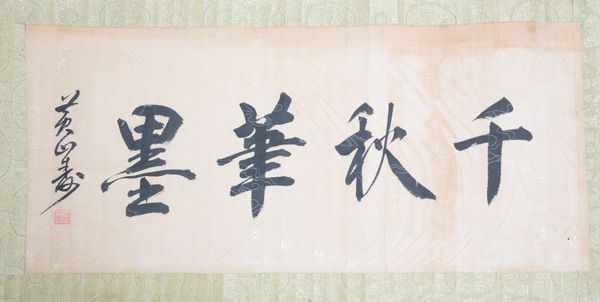 千秋筆墨
黃山壽